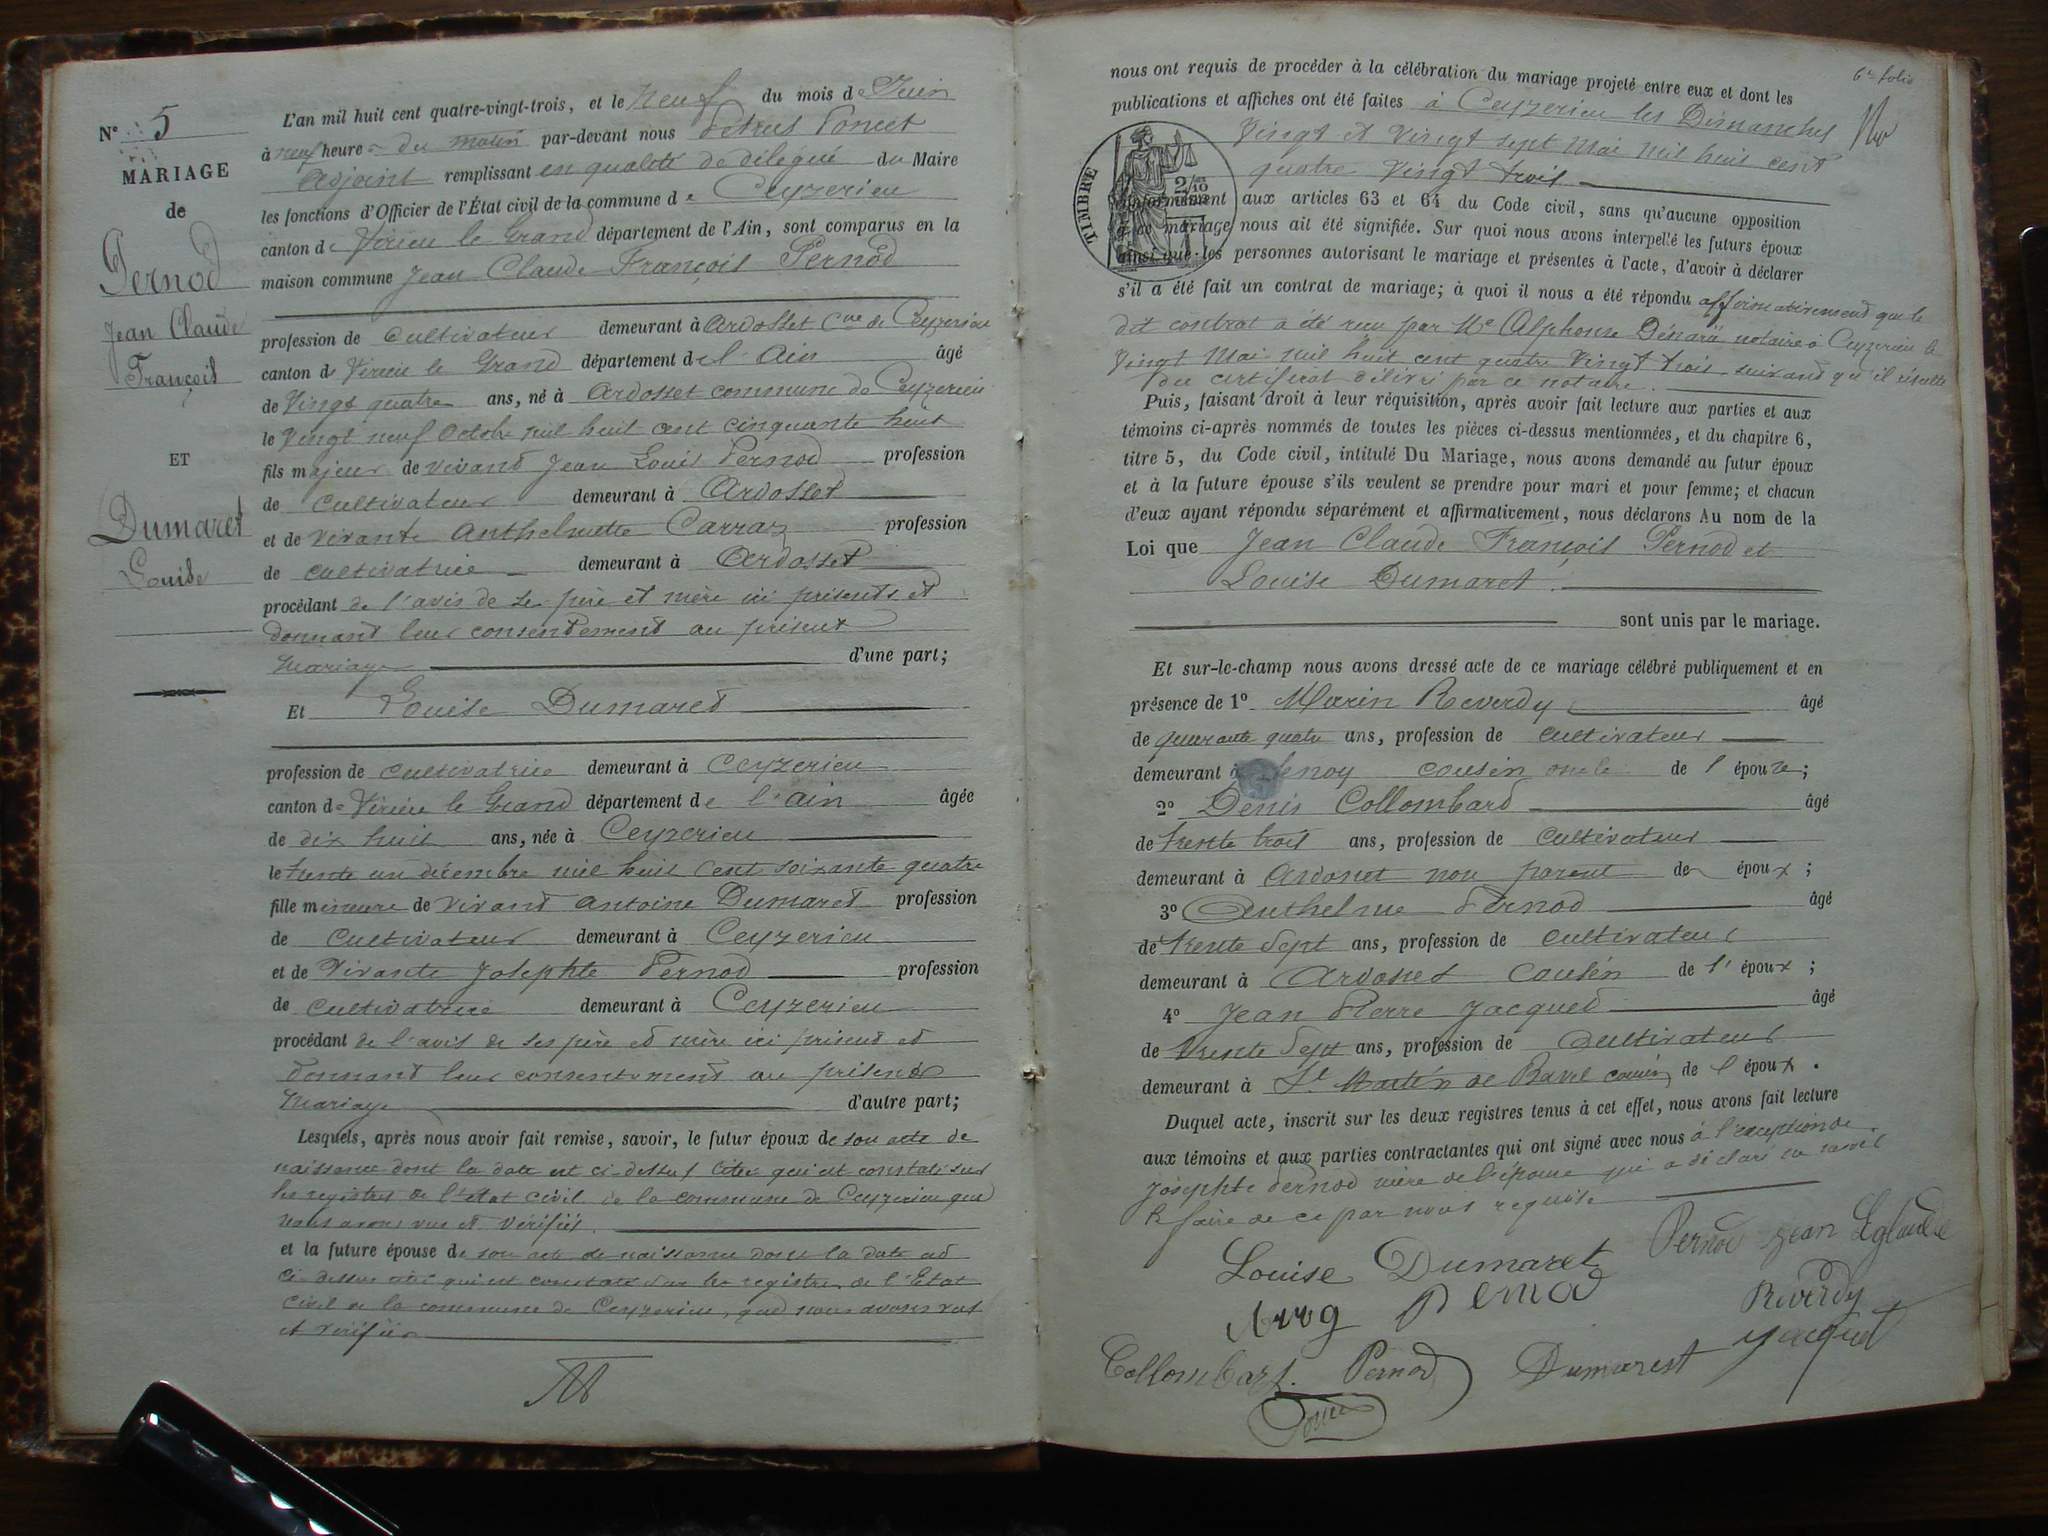 N° 5
MARIAGE
de
Pernod
Jean Claude
François
ET
Dumaret
Louise
L'an mil huit cent quatre-vingt-trois, et le neuf du mois de Juin
à neuf heures du matin par-devant nous Petrus Poncet
Adjoint remplissant en qualité de délégué du Maire
les fonctions d'Officier de l'État civil de la commune de Ceyzerieu
canton de Virieu le Grand département de l'Ain, sont comparus en la
maison commune Jean Claude François Pernod
profession de cultivateur demeurant à Ardosset Cne de Ceyzerieu
canton de Virieu le Grand département de l'Ain âgé
de Vingt quatre ans, né à Ardosset commune de Ceyzerieu
le Vingt neuf Octobre mil huit cent cinquante huit
fils majeur de vivant Jean Louis Pernod profession
de cultivateur demeurant à Ardosset
et de vivante Anthelmette Carraz profession
de cultivatrice demeurant à Ardosset
procédant de l'avis de se père et mère ici présents et
donnant leur consentement au présent
mariage d'une part;
Et Louise Dumaret
profession de cultivatrice demeurant à Ceyzerieu
canton de Virieu le Grand département de l'ain âgée
de dix huit ans, née à Ceyzerieu
le trente un décembre mil huit cent soixante quatre
fille mineure de vivant Antoine Dumaret profession
de cultivateur demeurant à Ceyzerieu
et de Vivante Josephte Pernod profession
de cultivatrice demeurant à Ceyzerieu
procédant de l'avis de ses père et mère ici présent et
donnant leur consentement au présent
Mariage d'autre part;
Lesquels, après nous avoir fait remise, savoir, le futur époux de son acte de
naissance dont la date est ci-dessus citée qui est constaté sur
les registres de l'état civil de la commune de Ceyzerieu que
nous avons vus et vérifiés.
et la future épouse de son acte de naissance dont la date est
ci-dessus citée qui est constaté sur les registres de l'Etat
civil de la commune de Ceyzerieu, que nous avons vus
et vérifiés
6e folio
nous ont requis de procéder à la célébration du mariage projeté entre eux et dont les
publications et affiches ont été faites à Ceyzerieu les Dimanches
Vingt et Vingt sept Mai mil huit cent
quatre Vingt trois
TIMBRE
2/10
conformément aux articles 63 et 64 du Code civil, sans qu'aucune opposition
à ce mariage nous ait été signifiée. Sur quoi nous avons interpellé les futurs époux
ainsi que les personnes autorisant le mariage et présentes à l'acte, d'avoir à déclarer
s'il a été fait un contrat de mariage; à quoi il nous a été répondu affirmativement que le
dit contrat a été reçu par Me Alphonse notaire à Ceyzerieu le
Vingt Mai mil huit cent quatre Vingt trois suivant qu'il résulte
du certificat délivré par ce notaire.
Puis, faisant droit à leur réquisition, après avoir fait lecture aux parties et aux
témoins ci-après nommés de toutes les pièces ci-dessus mentionnées, et du chapitre 6,
titre 5, du Code civil, intitulé Du Mariage, nous avons demandé au futur époux
et à la future épouse s'ils veulent se prendre pour mari et pour femme; et chacun
d'eux ayant répondu séparément et affirmativement, nous déclarons Au nom de la
Loi que Jean Claude François Pernod et
Louise Dumaret.
sont unis par le mariage.
Et sur-le-champ nous avons dressé acte de ce mariage célébré publiquement et en
présence de 1° Marin Reverdy âgé
de quarante quatre ans, profession de cultivateur
demeurant à cousin de l'épouse;
2° Denis Collombard âgé
de trente trois ans, profession de cultivateur
demeurant à Ardosset non parent de époux;
3° Anthelme Pernod âgé
de trente sept ans, profession de cultivateur
demeurant à Ardosset cousin de l'époux;
4° Jean Pierre Jacquet âgé
de trente sept ans, profession de cultivateur
demeurant à St Martin de Bavel cousin de l'époux.
Duquel acte, inscrit sur les deux registres tenus à cet effet, nous avons fait lecture
aux témoins et aux parties contractantes qui ont signé avec nous à l'exception de
Josephte Pernod mère de l'épouse qui a déclaré ne savoir
le faire de ce par nous requise
Louise Dumaret Pernod Jean
Pernod Reverdy
Collombard. Pernod Dumarest Jacquet